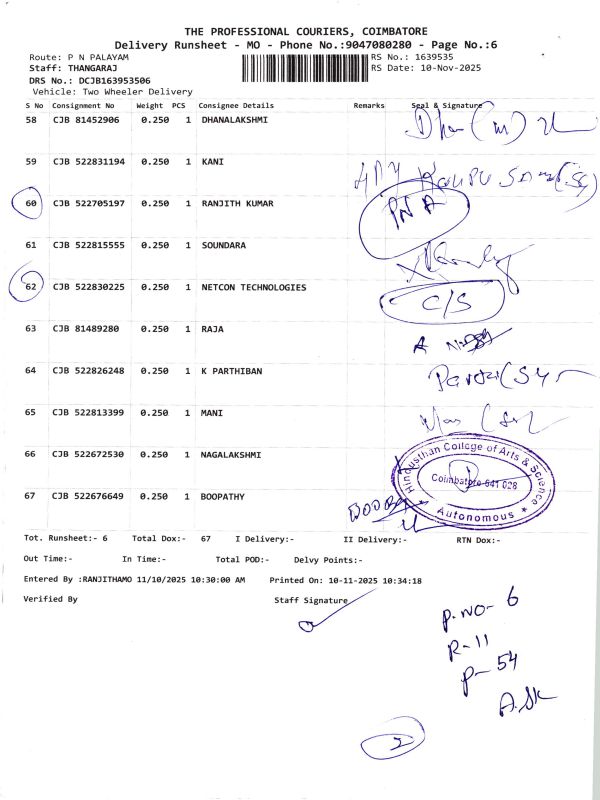 THE PROFESSIONAL COURIERS, COIMBATORE
Delivery Runsheet - MO - Phone No.:9047080280 - Page No.:6
Route: P N PALAYAM RS No.: 1639535
Staff: THANGARAJ RS Date: 10-Nov-2025
DRS No.: DCJB163953506
Vehicle: Two Wheeler Delivery
S No Consignment No Weight PCS Consignee Details Remarks Seal & Signature
58 CJB 81452906 0.250 1 DHANALAKSHMI
59 CJB 522831194 0.250 1 KANI
60 CJB 522705197 0.250 1 RANJITH KUMAR PNA
61 CJB 522815555 0.250 1 SOUNDARA
62 CJB 522830225 0.250 1 NETCON TECHNOLOGIES C/S
63 CJB 81489280 0.250 1 RAJA
64 CJB 522826248 0.250 1 K PARTHIBAN
65 CJB 522813399 0.250 1 MANI
66 CJB 522672530 0.250 1 NAGALAKSHMI
Hindusthan College of Arts & Science
Coimbatore-641 028
Autonomous
67 CJB 522676649 0.250 1 BOOPATHY
Tot. Runsheet:- 6 Total Dox:- 67 I Delivery:- II Delivery:- RTN Dox:-
Out Time:- In Time:- Total POD:- Delvy Points:-
Entered By :RANJITHAMO 11/10/2025 10:30:00 AM Printed On: 10-11-2025 10:34:18
Verified By Staff Signature
P.NO- 6
R-11
P-54
A.SK
2